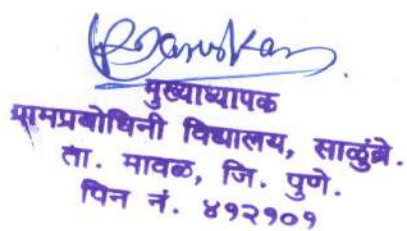 मुख्याध्यापक
ग्रामप्रबोधिनी विद्यालय, साळुंब्रे.
ता. मावळ, जि. पुणे.
पिन नं. ४१२१०१